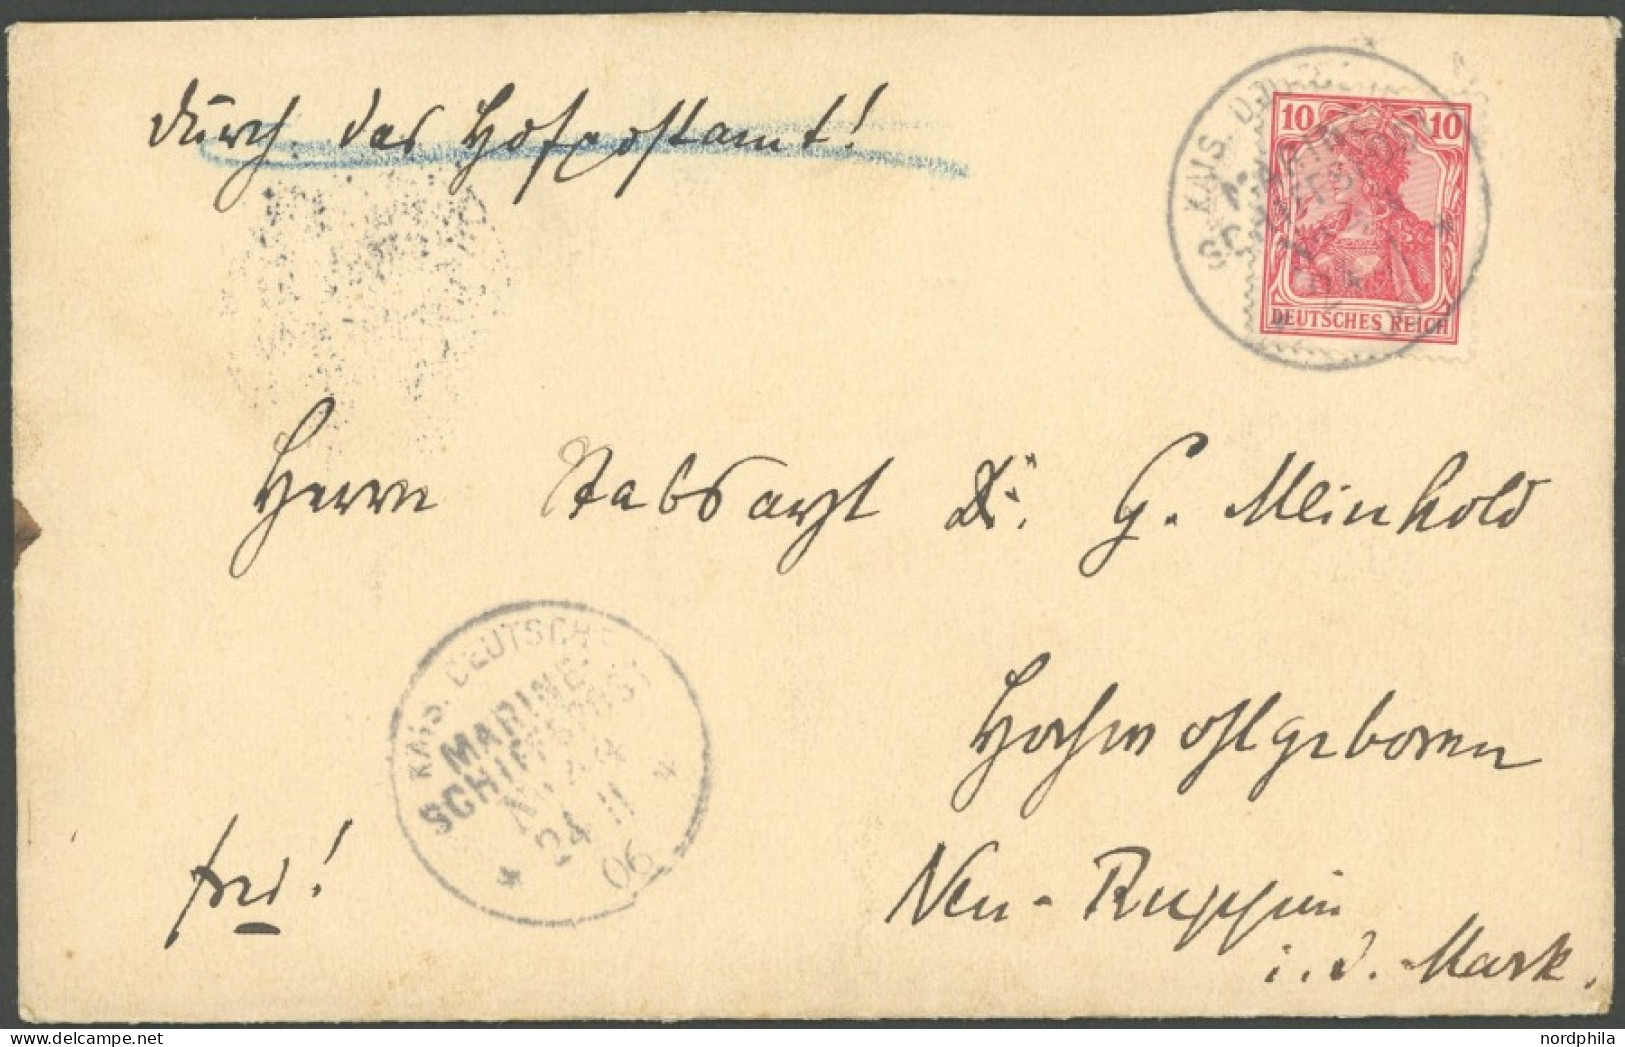 durch das Hofpostamt!
10 10
DEUTSCHES REICH
KAIS. D
MARINE
SCHIFFSPOST
Herrn Stabsarzt Dr. G. Meinhold
Hochwohlgeboren
KAIS. DEUTSCHE
MARINE-
SCHIFFSPOST
No. 24
* 24 11 *
06
frei!
Neu-Ruppin
i. d. Mark.
nordphila